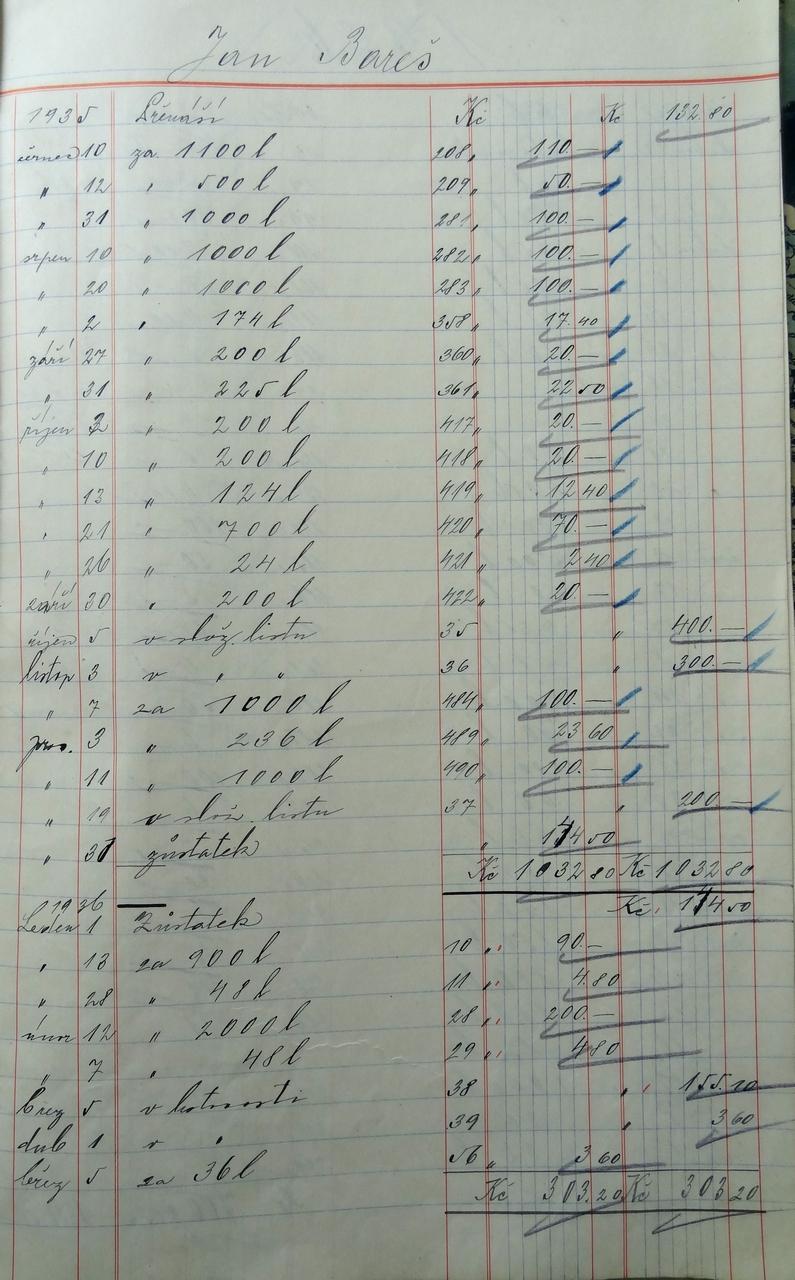 Jan Bareš
1935 Přenáší Kč Kč 132.80
červenec 10 za 1100 l 208 „ 110.—
„ 12 „ 500 l 209 „ 50.—
„ 31 „ 1000 l 281 „ 100.—
srpen 10 „ 1000 l 282 „ 100.—
„ 20 „ 1000 l 283 „ 100.—
„ 2 „ 174 l 358 „ 17.40
září 27 „ 200 l 360 „ 20.—
„ 31 „ 225 l 361 „ 22 50
říjen 2 „ 200 l 417 „ 20.—
„ 10 „ 200 l 418 „ 20.—
„ 13 „ 124 l 419 „ 12 40
„ 21 „ 700 l 420 „ 70.—
„ 26 „ 24 l 421 „ 2 40
září 30 „ 200 l 422 „ 20.—
říjen 5 v slož. listu 35 „ 400.—
listop 3 v „ „ 36 „ 300.—
„ 7 za 1000 l 484 „ 100.—
pros. 3 „ 236 l 489 „ 23 60
„ 11 „ 1000 l 490 „ 100.—
„ 19 v slož. listu 37 „ 200.—
„ 31 zůstatek „ 144 50
Kč 1032 80 Kč 1032 80
1936 Kč 144 50
Leden 1 Zůstatek
„ 13 za 900 l 10 „ 90.—
„ 28 „ 48 l 11 „ 4.80
únor 12 „ 2000 l 28 „ 200.—
„ 7 „ 48 l 29 „ 4 80
břez 5 v hotovosti 38 „ 155.10
dub 1 v „ 39 „ 3 60
břez

 5 za 36 l 56 „ 3 60
Kč 303.20 Kč 303 20